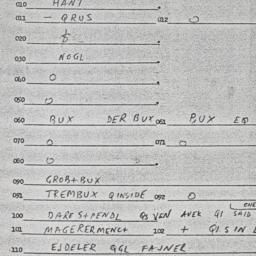 010 HANT
011 - QRUS 012 O
020
030 NOGL
040 O
050 O
060 BUX DER BUX 061 BUX EQ
070 O 071 O
080 O
090 GROB+BUX
091 TREMBUX QINSIDE 092 O
100 DARES+PENDL QS VEN AVER QI SAID
101 MAGERERMENCT 102 + QI SIN
110 EJDELER GGL FAJNER